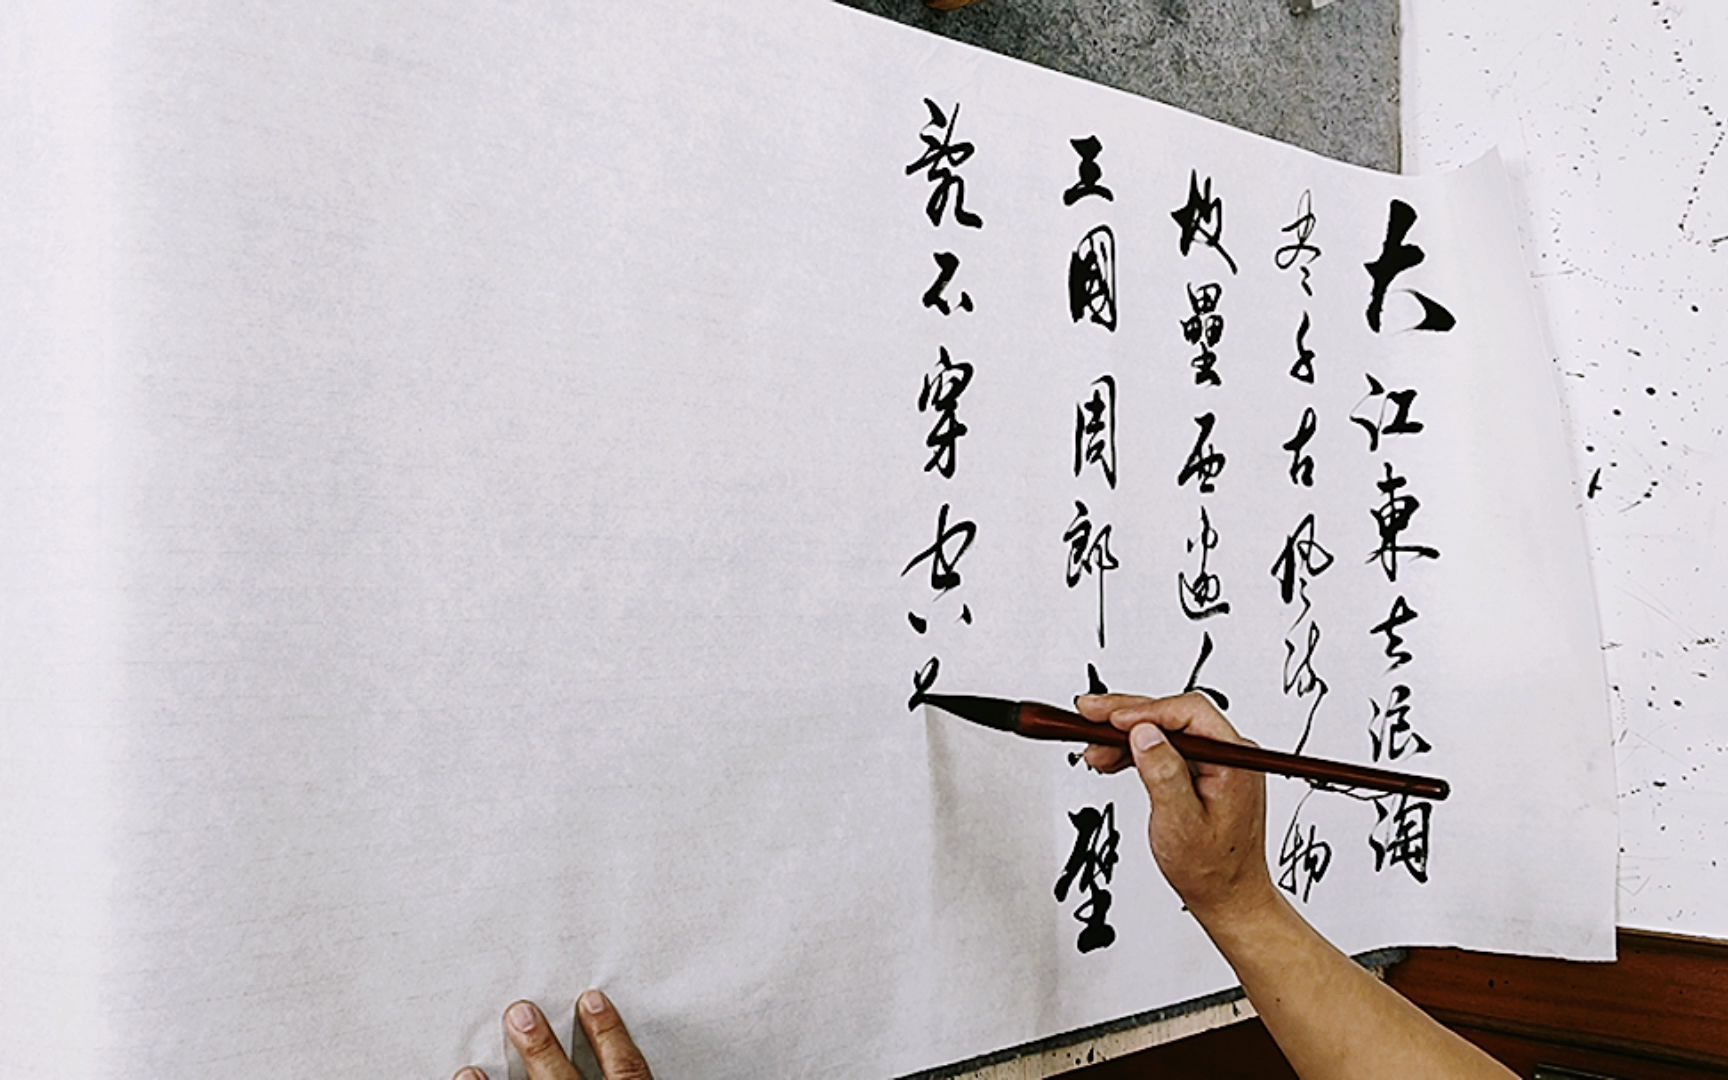 大江東去浪淘
尽千古風流人物
故壘西邊人
三國周郎赤壁
亂石穿空